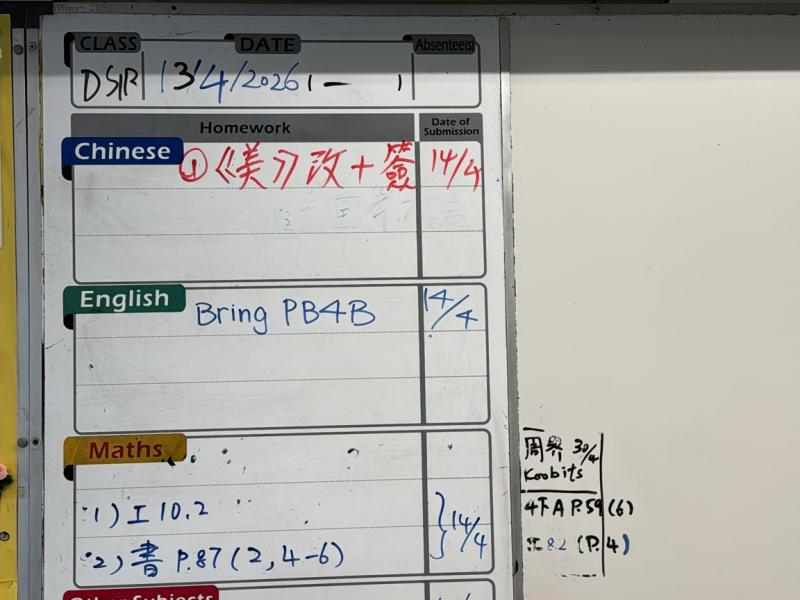 CLASS DATE Absentee(s)
13/4/2026 ( 一 )
Homework Date of Submission
Chinese ① 《美》改+簽 14/4
English Bring PB4B 14/4
Maths
1) 工 10.2
2) 書 P.87 (2, 4-6) 14/4
Other Subjects
周界 30/4
Koobits
4下A P.59 (6)
8.2 (P.4)